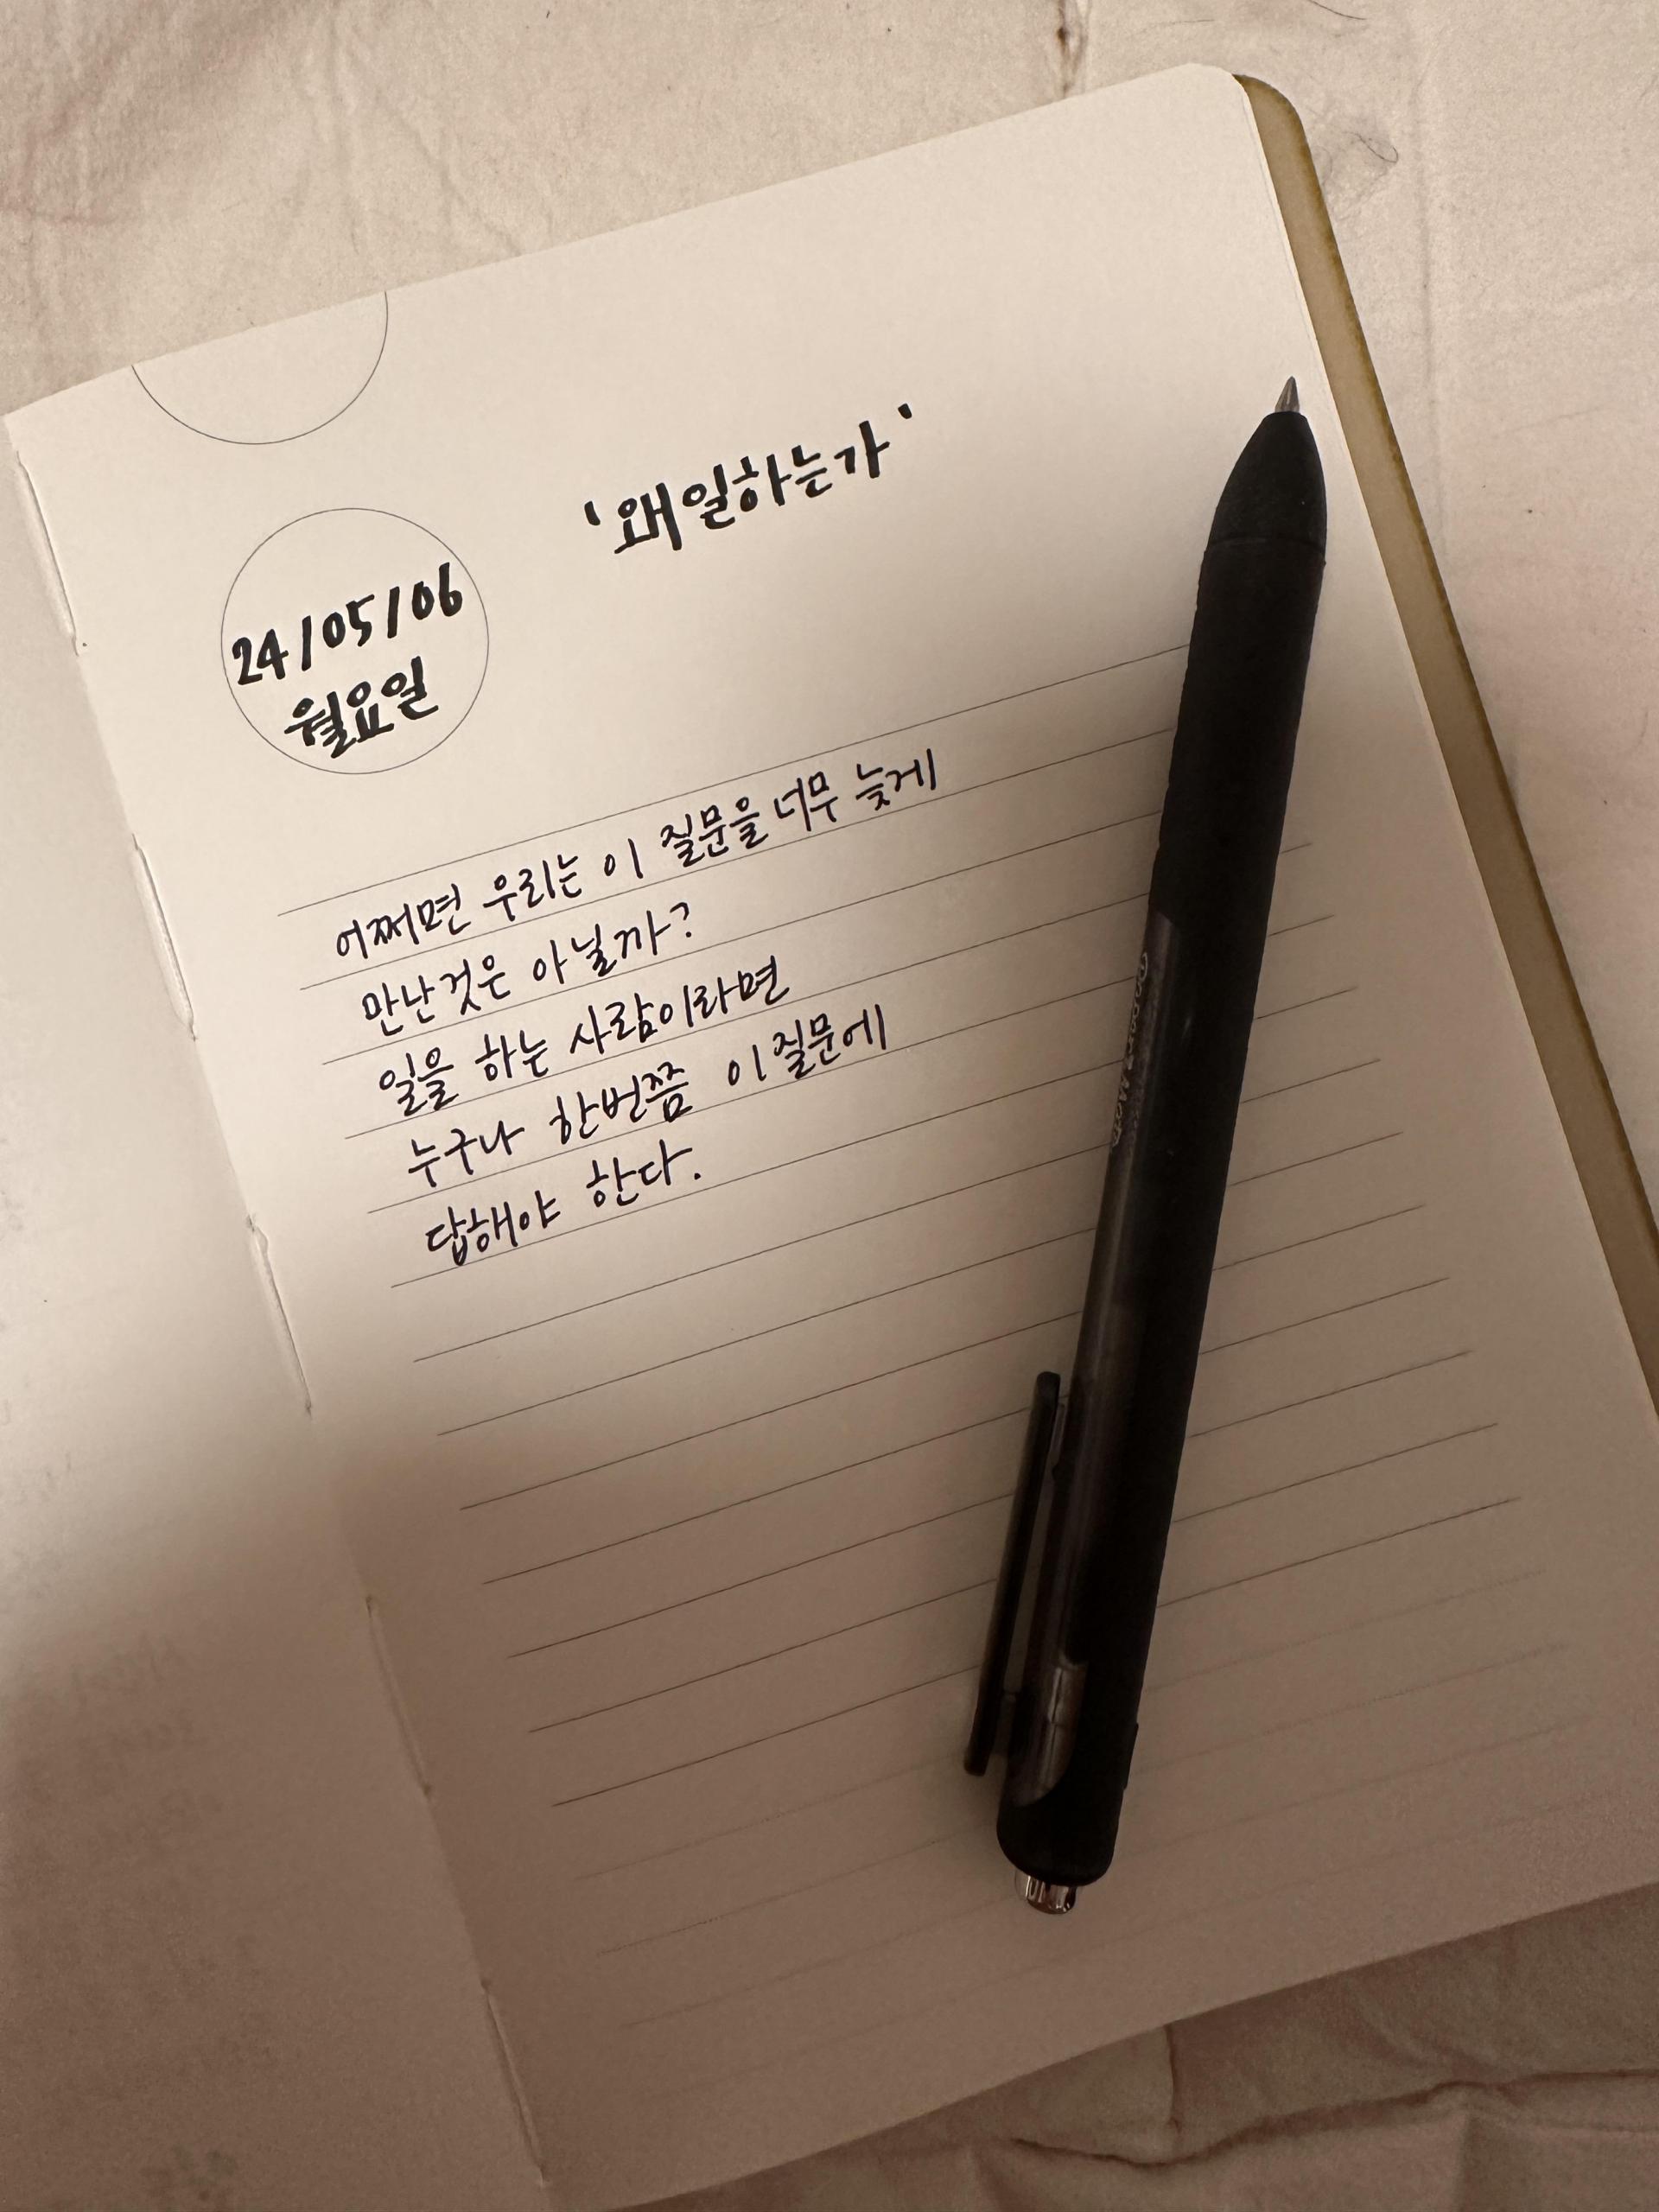 '왜 일하는가'
24/05/06
월요일
어쩌면 우리는 이 질문을 너무 늦게
만난것은 아닐까?
일을 하는 사람이라면
누구나 한번쯤 이 질문에
답해야 한다.